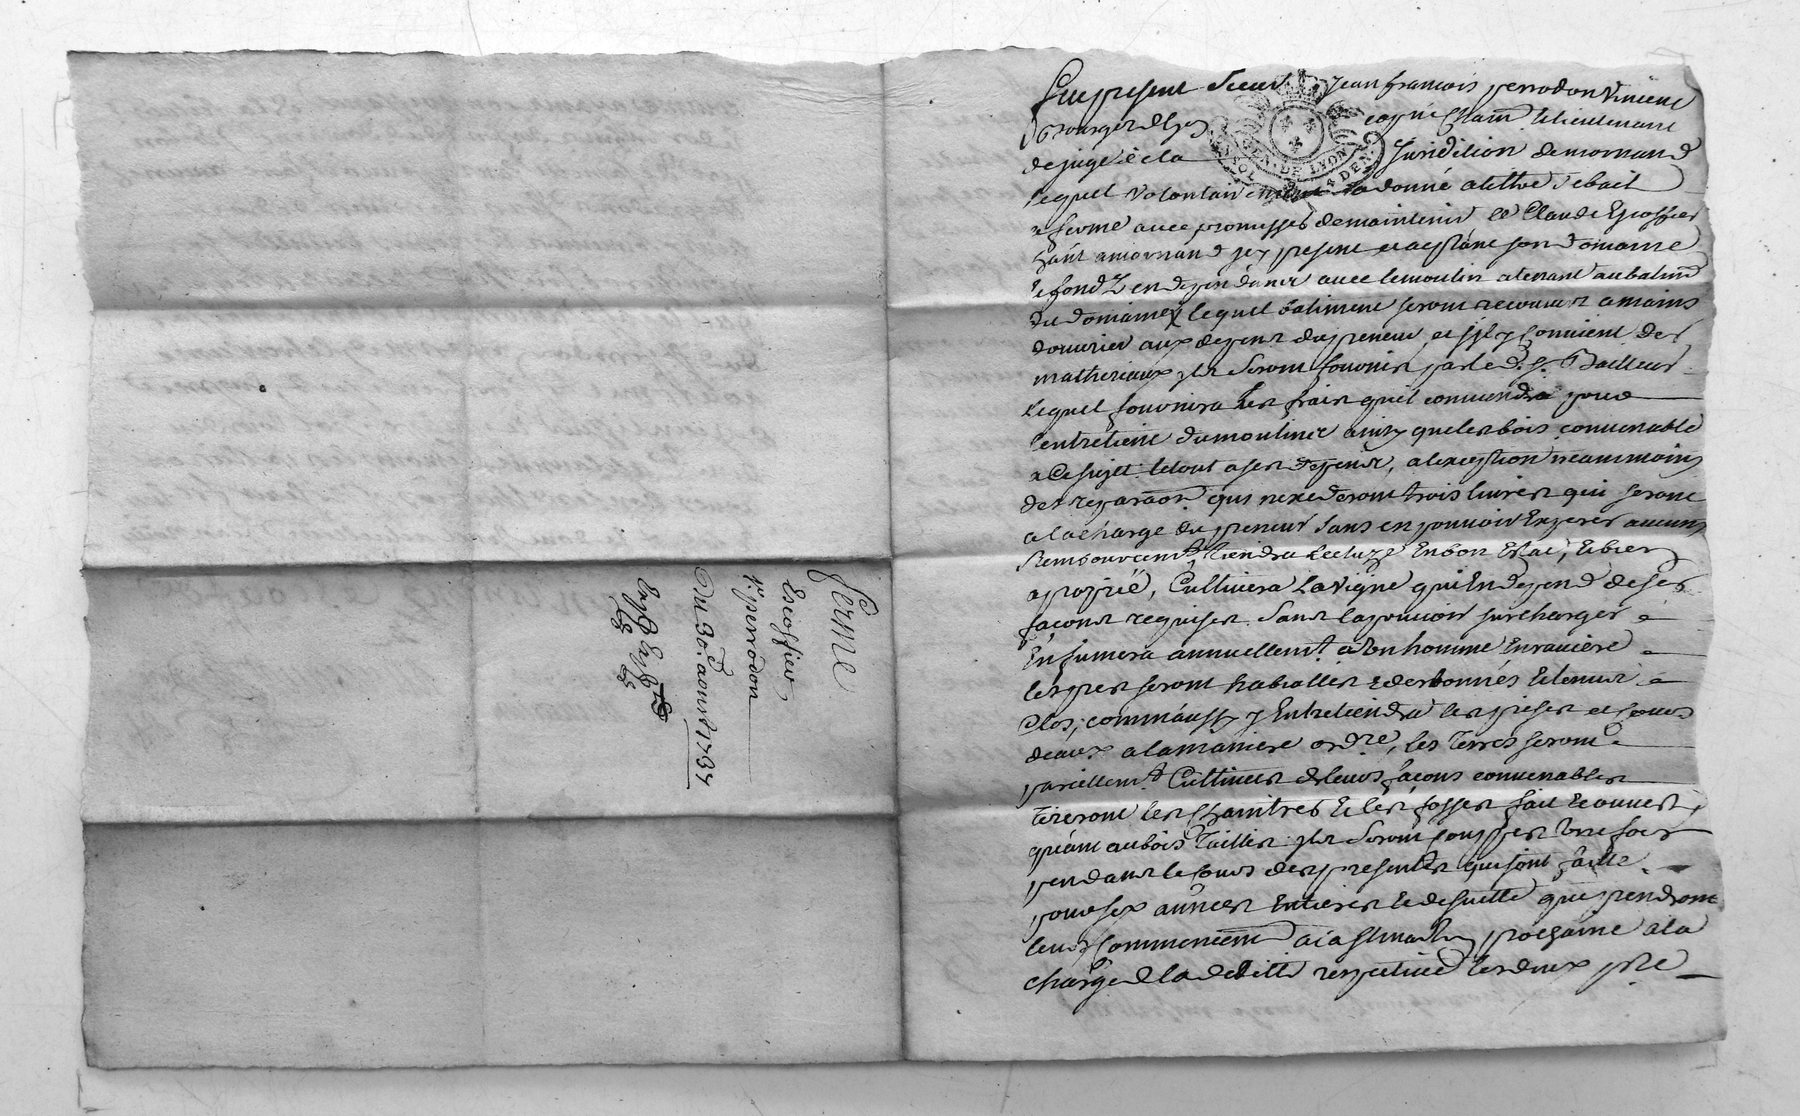 ferme
Escoffier
Sr perrodon
Du 30e aoust 1737
Fut present Sieur Jean francois perrodon
Bourgeois de Lyon lieutenant
de juge de la Juridition de mornand
lequel volontairement a donné a tiltre de bail
a ferme avec promesses de maintenir a Claude Escoffier
hâñt a mornand jcy present et acceptant son domaine
et fondz en dependants avec le moulin atenant au batim̃
du domaine lequel batiment seront recouvert a mains
douvrier aux depens du preneur et sjl y convient des
matheriaux jls seront fournis par le d. s. Bailleur
lequel fournira les frais quil conviendra pour
lentretient du moulin et ainsy que les bois convenable
a ce sujet le tout a ses depens, a lexception neammoins
des reparãon qui nexcederont trois livres qui seront
a la charge du preneur sans en pouvoir Exiger aucuns
Remboursemt, tiendra Lecluze En bon Estat, et bien
aproprié, Cultivera la vigne qui En depend de ses
façons requises sans la pouvoir surcharger
En fumera annuellemt
les prés seront
clos, comm'aussy Entretiendra les prises et cours
deaux a la maniere ordre, les terres seront
pareillemt Cultivées de leurs façons convenables
tireront les chaintres et les fosses fait et ouvert
quânt au bois Taillis jls seront couppes une fois
pendant le cours des presentes qui sont faitte
pour six années Entieres et de suitte que prendront
leurs commencemt a la St martin prochaine a la
charge de la deditte respective les deux pre
GEN. DE LYON
SOL
4 DEN.